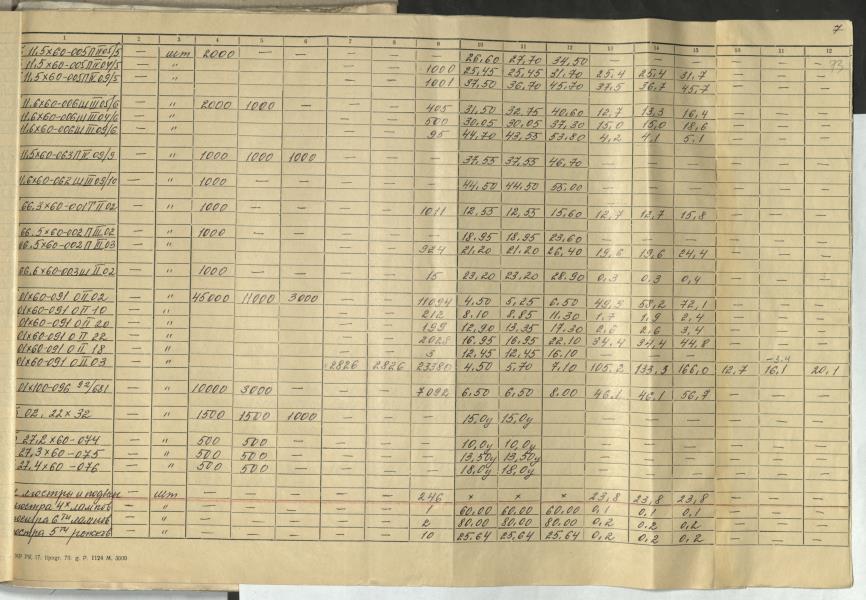 7
93
1 2 3 4 5 6 7 8 9 10 11 12 13 14 15 10 11 12
11,5×60-005 П III 05/5 — шт 2000 — — — — — 26,60 27,70 34,50 — — — — — —
11,5×60-005 П III 04/5 — " — — 1000 25,45 25,45 31,70 25,4 25,4 31,7 — — —
11,5×60-005 П III 09/5 — " — — 1001 37,50 36,70 45,70 37,5 36,7 45,7 — — —
11,6×60-006 Ш III 05/6 — " 2000 1000 — — — 405 31,50 32,75 40,60 12,7 13,3 16,4 — — —
11,6×60-006 Ш III 04/6 — " — — 500 30,05 30,05 37,30 15,0 15,0 18,6 — — —
11,6×60-006 Ш III 09/6 — " — — 95 44,70 43,55 53,80 4,2 4,1 5,1 — — —
11,5×60-063 П IV 09/9 — " 1000 1000 1000 — — — 37,55 37,55 46,70 — — — — — —
11,6×60-062 Ш III 09/10 — " 1000 — — — — — 44,50 44,50 55,00 — — — — — —
66,3×60-001 Т II 02 — " 1000 — — — — 1011 12,55 12,55 15,60 12,7 12,7 15,8 — — —
66,5×60-002 П III 02 — " 1000 — — — — — 18,95 18,95 23,60 — — — — — —
66,5×60-002 П III 03 — " — — 924 21,20 21,20 26,40 19,6 19,6 24,4 — — —
66,6×60-003 Ш II 02 — " 1000 — — — — 15 23,20 23,20 28,90 0,3 0,3 0,4 — — —
01×60-091 О II 02 — " 45000 11000 3000 — — 11094 4,50 5,25 6,50 49,9 58,2 72,1 — — —
01×60-091 О II 10 — " — — 212 8,10 8,85 11,30 1,7 1,9 2,4 — — —
01×60-091 О II 20 — " — — 199 12,90 13,35 17,30 2,6 2,6 3,4 — — —
01×60-091 О II 22 — " — — 2028 16,95 16,95 22,10 34,4 34,4 44,8 — — —
01×60-091 О II 18 — " — — 3 12,45 12,45 16,10 — — — — -3,4 —
01×60-091 О II 03 — " 2826 2826 23380 4,50 5,70 7,10 105,2 133,3 166,0 12,7 16,1 20,1
01×100-096 92/681 — " 10000 3000 — — — 7092 6,50 6,50 8,00 46,1 46,1 56,7 — — —
02, 22×32 — " 1500 1500 1000 — — — 15,0у 15,0у — — — — — —
27,2×60-074 — " 500 500 — — — — 10,0у 10,0у — — — — — —
27,3×60-075 — " 500 500 — — — — 13,50у 13,50у — — — — — —
27,4×60-076 — " 500 500 — — — — 18,0у 18,0у — — — — — —
люстры и подвес — шт — — — — — 246 × × × 23,8 23,8 23,8 — — —
люстра 4х лампов — " — — — — — 1 60,00 60,00 60,00 0,1 0,1 0,1 — — —
люстра 6ти лампов — " — — — — — 2 80,00 80,00 80,00 0,2 0,2 0,2 — — —
люстра 5ти рожков — " — — — — — 10 25,64 25,64 25,64 0,2 0,2 0,2 — — —
17. tipogr. 73. g. P. 1124 M. 3000